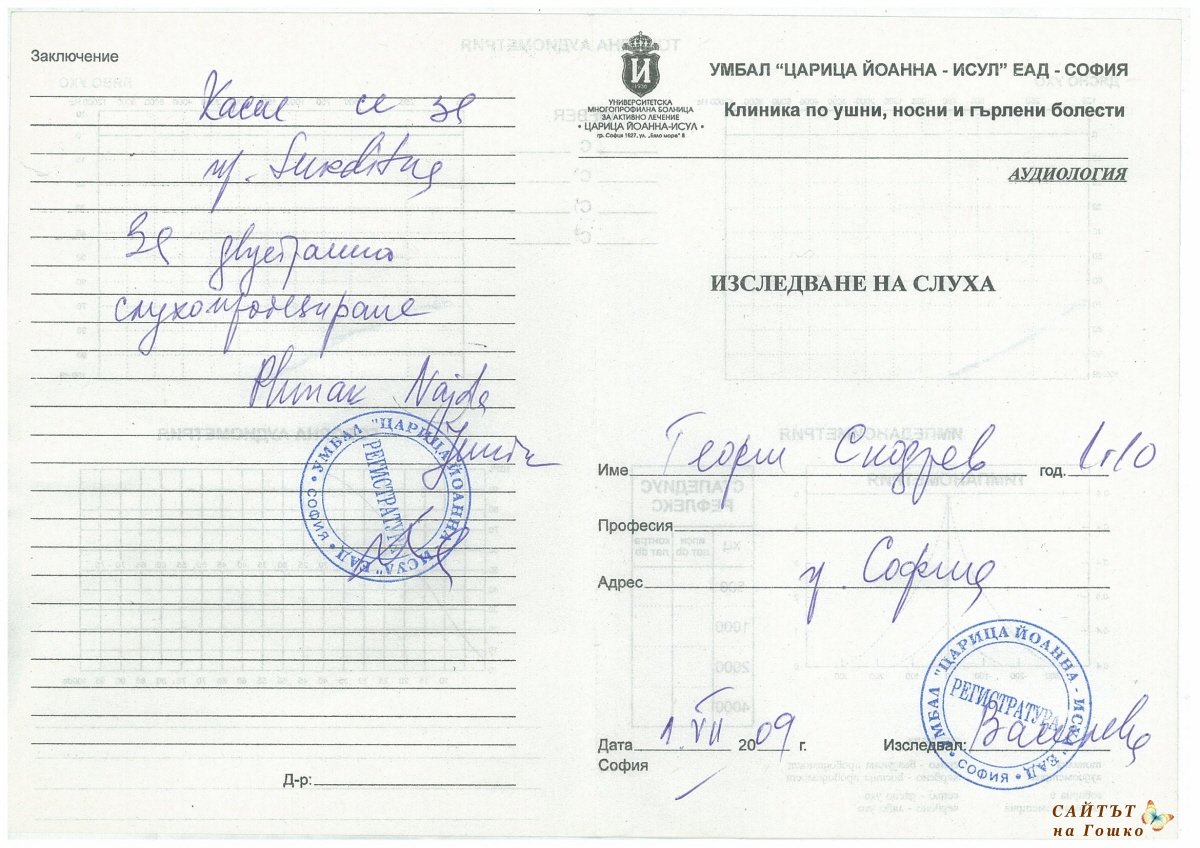 Заключение
Касае се за
гр. Surditas
За двустранно
слухопротезиране
Phonak Najda
УМБАЛ "ЦАРИЦА ЙОАННА - ИСУЛ" ЕАД • СОФИЯ •
РЕГИСТРАТУРА
Д-р:
И
1936
УНИВЕРСИТЕТСКА
МНОГОПРОФИЛНА БОЛНИЦА
ЗА АКТИВНО ЛЕЧЕНИЕ
• ЦАРИЦА ЙОАННА-ИСУЛ •
гр. София 1527, ул. „Бяло море“ 8
УМБАЛ “ЦАРИЦА ЙОАННА - ИСУЛ” ЕАД - СОФИЯ
Клиника по ушни, носни и гърлени болести
АУДИОЛОГИЯ
ИЗСЛЕДВАНЕ НА СЛУХА
Име Георги год.
Професия
Адрес гр. София
Дата 1.VII 2009 г. Изследвал:
София
УМБАЛ "ЦАРИЦА ЙОАННА - ИСУЛ" ЕАД • СОФИЯ •
РЕГИСТРАТУРА
САЙТЪТ
на Гошко